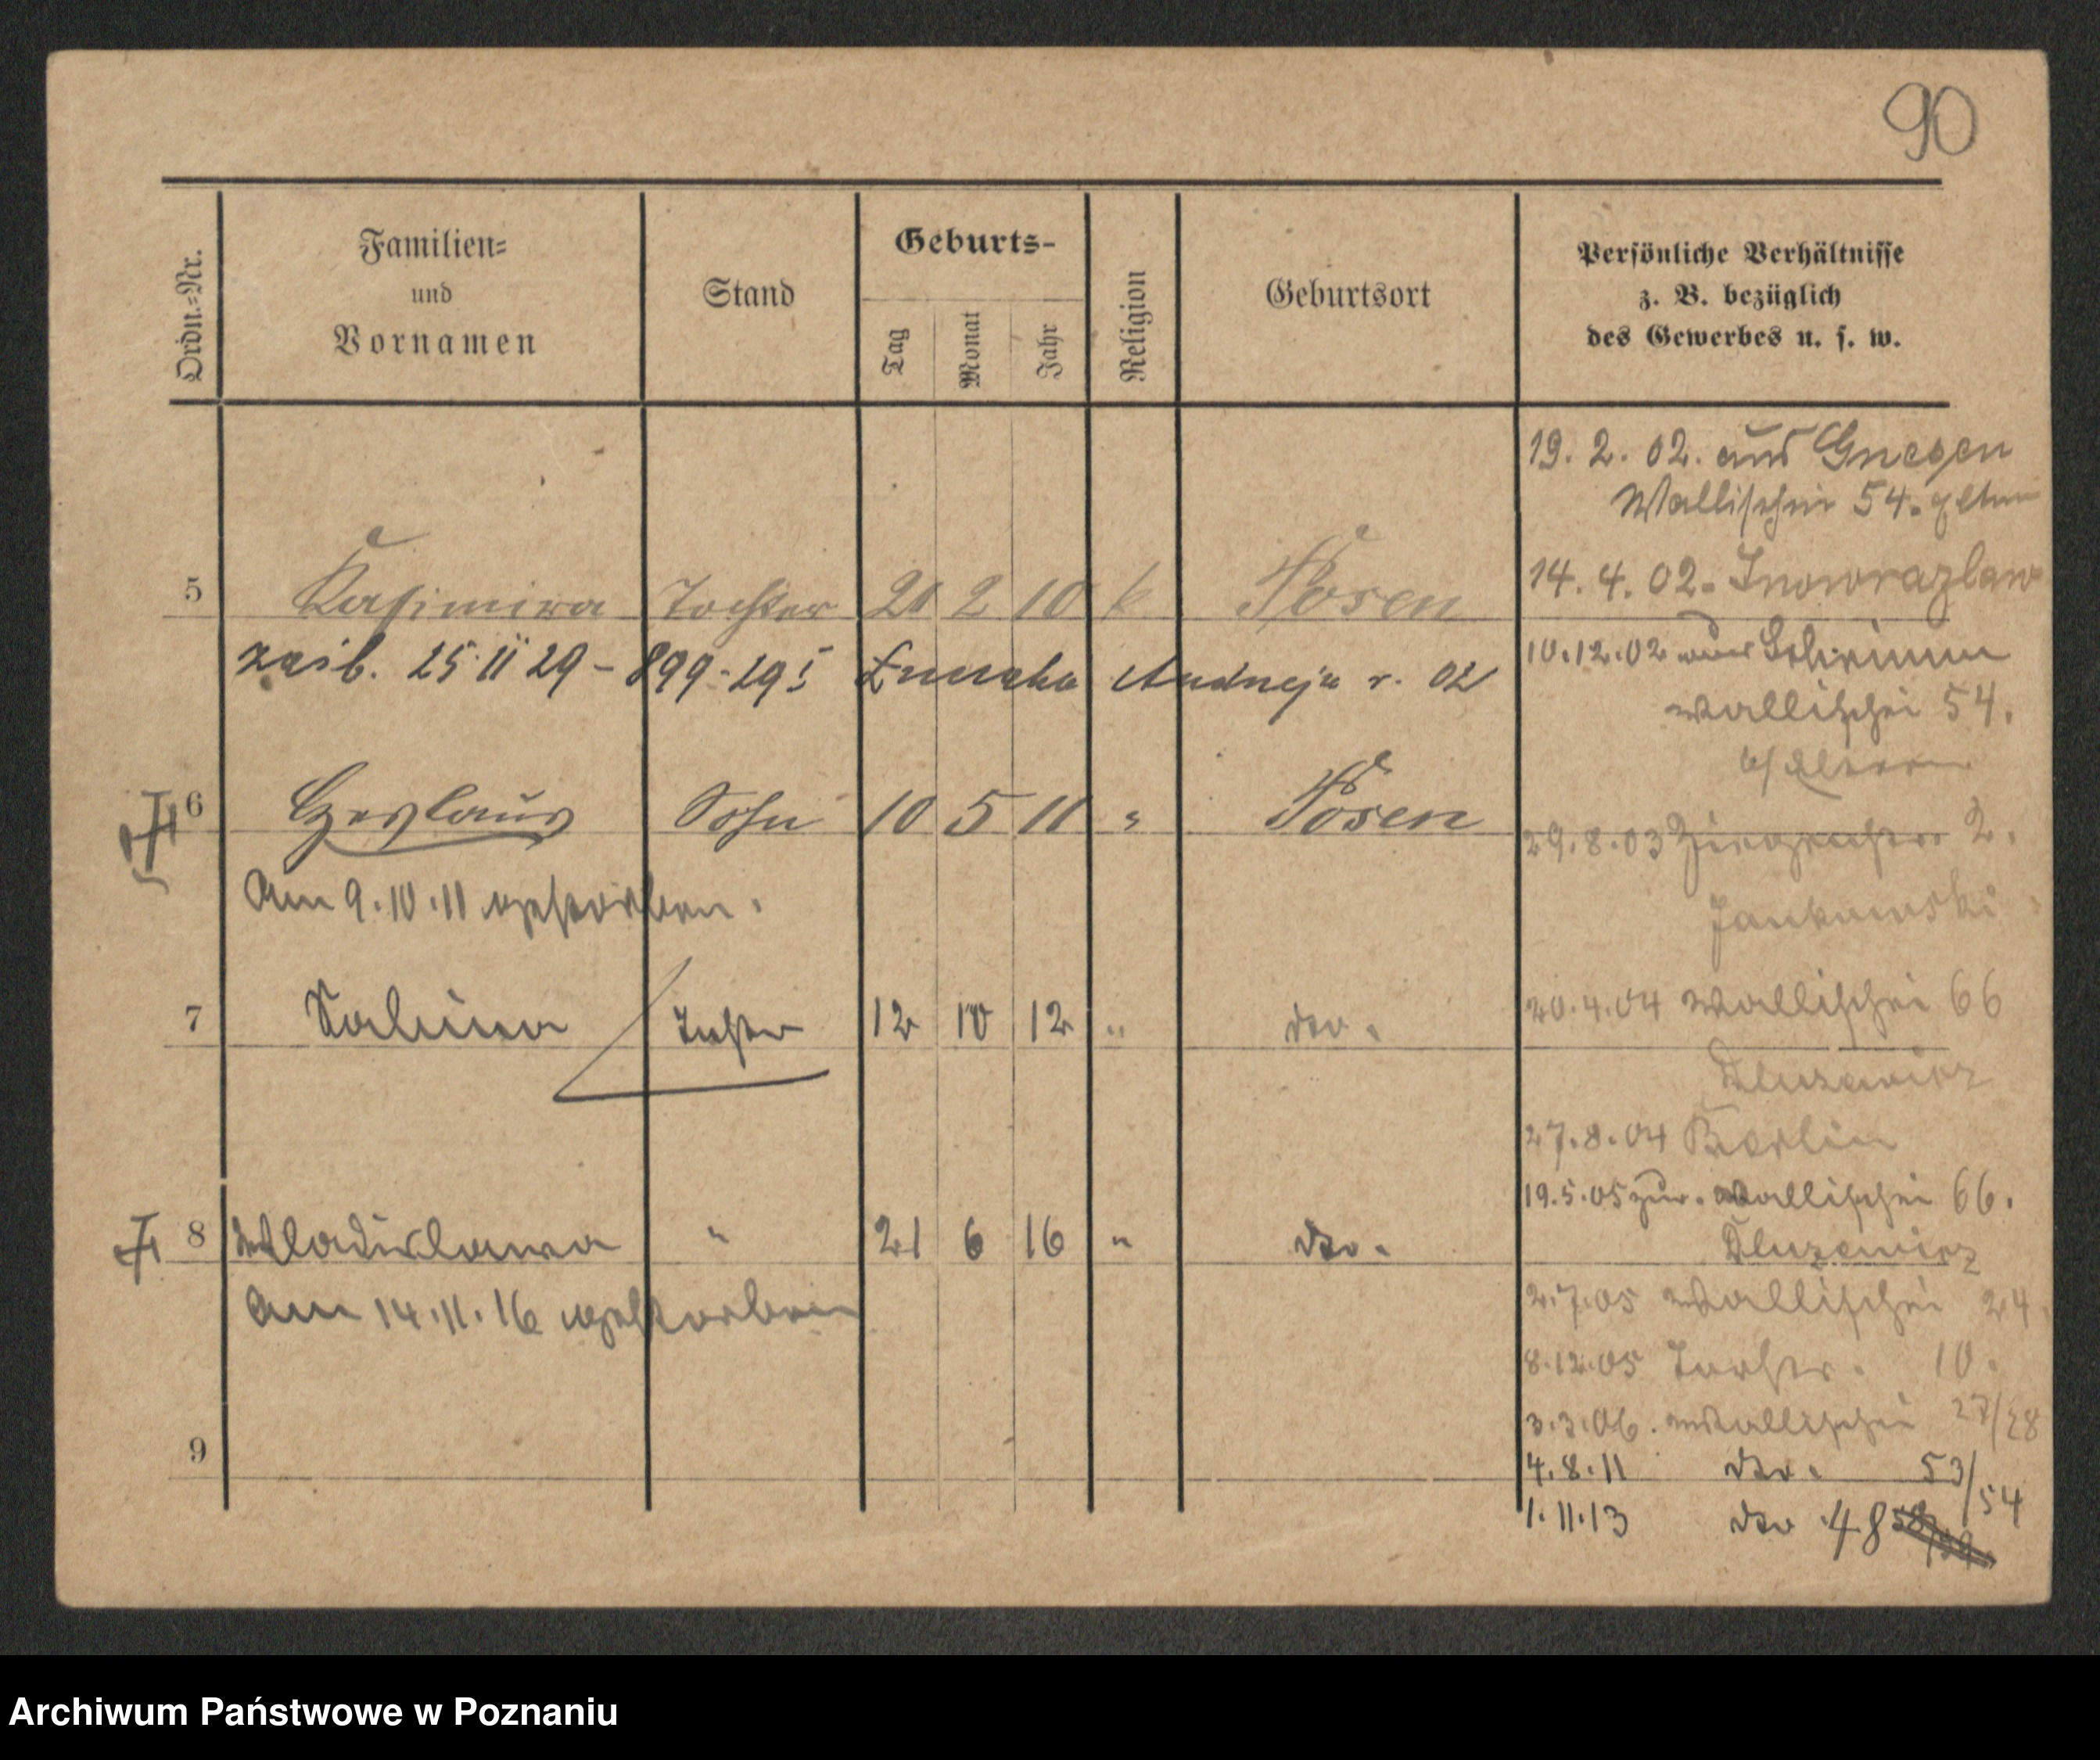 90
Ordn.-Nr.
Familien-
und
Vornamen
Stand
Geburts-
Tag
Monat
Jahr
Religion
Geburtsort
Persönliche Verhältnisse
z. B. bezüglich
des Gewerbes u. s. w.
19. 2. 02. aus Gnesen
Wallischei 54.
14. 4. 02. Inowrazlaw
5 Kasimira Tochter 20 2 10 k Posen
10.12.02 aus Schrimm
25 II 29 - 899-295 Andrzeja r. 02
Wallischei 54.
b/ Eltern
6 Czeslaus Sohn 10 5 11 " Posen
29.8.03 2.
Am 9.10.11 gestorben.
Jankowski
7 Salina Tochter 12 10 12 " dto.
20.4.04 Wallischei 66
Dluzewicz
27.8.04 Berlin
19.5.05 zur. Wallischei 66.
8 Wladislawa " 21 6 16 " dto.
Dluzewicz
Am 14.11.16 gestorben
2.7.05 Wallischei 24.
8.12.05 10.
3.3.06. Wallischei 27/28
9
4.8.11 dto. 53/54
1.11.13 dto 48
Archiwum Państwowe w Poznaniu